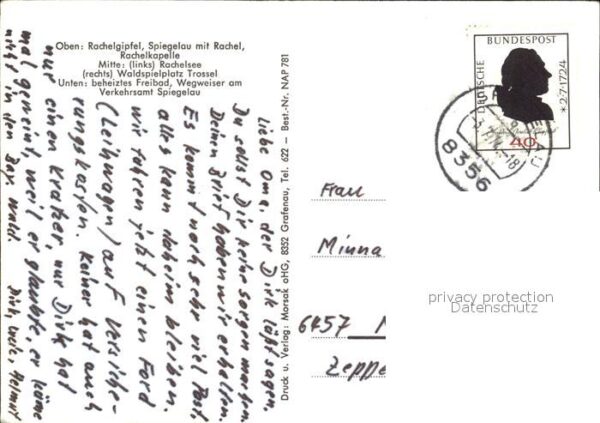 Oben: Rachelgipfel, Spiegelau mit Rachel,
Rachelkapelle
Mitte: (links) Rachelsee
(rechts) Waldspielplatz Trossel
Unten: beheiztes Freibad, Wegweiser am
Verkehrsamt Spiegelau
Liebe Oma, der Dirk läßt sagen,
Du sollst Dir keine sorgen machen.
Deinen Brief haben wir erhalten.
Es kommt noch sehr viel Post,
alles kann daheim bleiben.
wir fahren jetzt einen Ford
(Leihwagen) auf Versiche-
rungskosten. Keiner hat auch
nur einen Kratzer, nur Dirk hat
mal geweint, weil er glaubte, er käme
nicht in den Bay. Wald.
Dirk, Helmut
Druck u. Verlag: Morsak oHG, 8352 Grafenau, Tel. 622 — Best.-Nr. NAP 781
DEUTSCHE
BUNDESPOST
* 2·7·1724
40
8356
-18
Frau
Minna
6457
Zeppe
privacy protection
Datenschutz